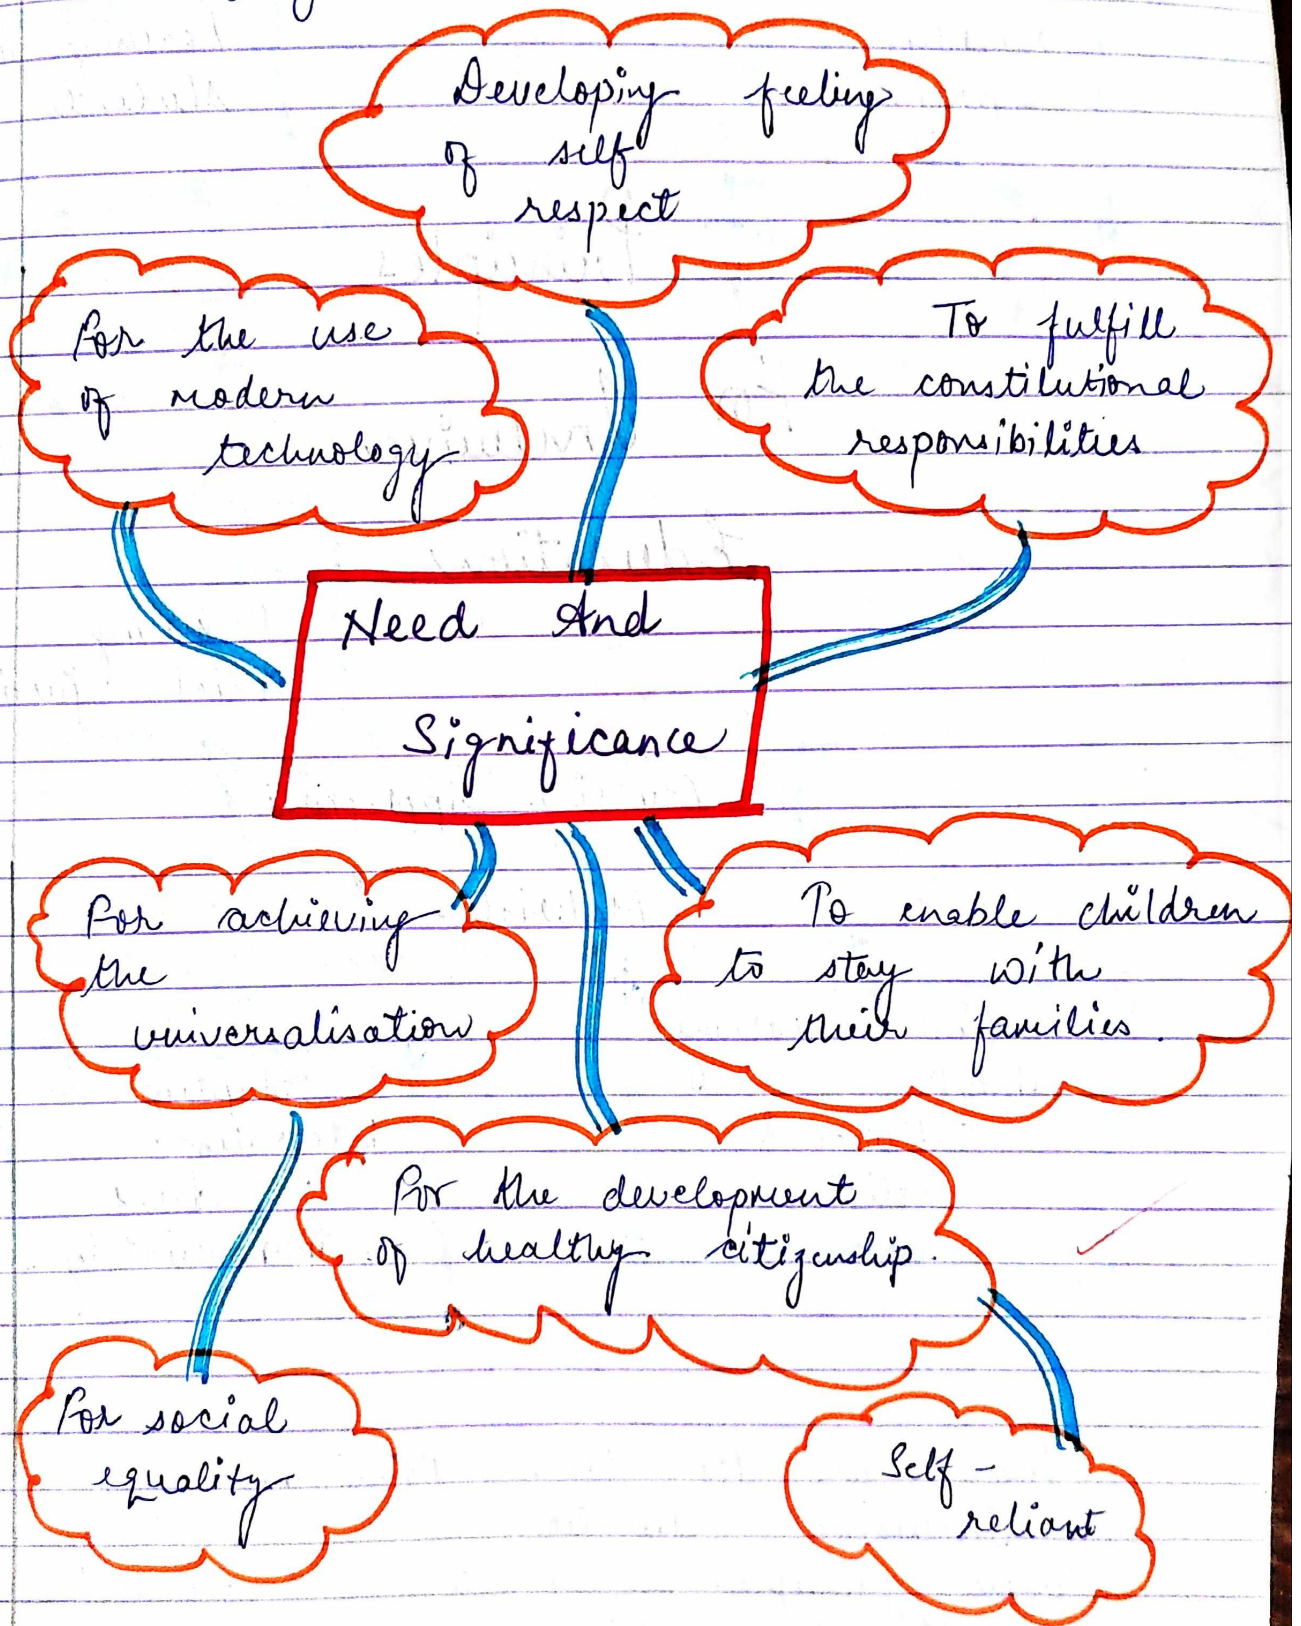 Developing feeling
of self
respect
For the use
of modern
technology
To fulfill
the constitutional
responsibilities
Need And
Significance
For achieving
the
universalisation
To enable children
to stay with
their families.
For the development
of healthy citizenship.
For social
equality
Self-
reliant